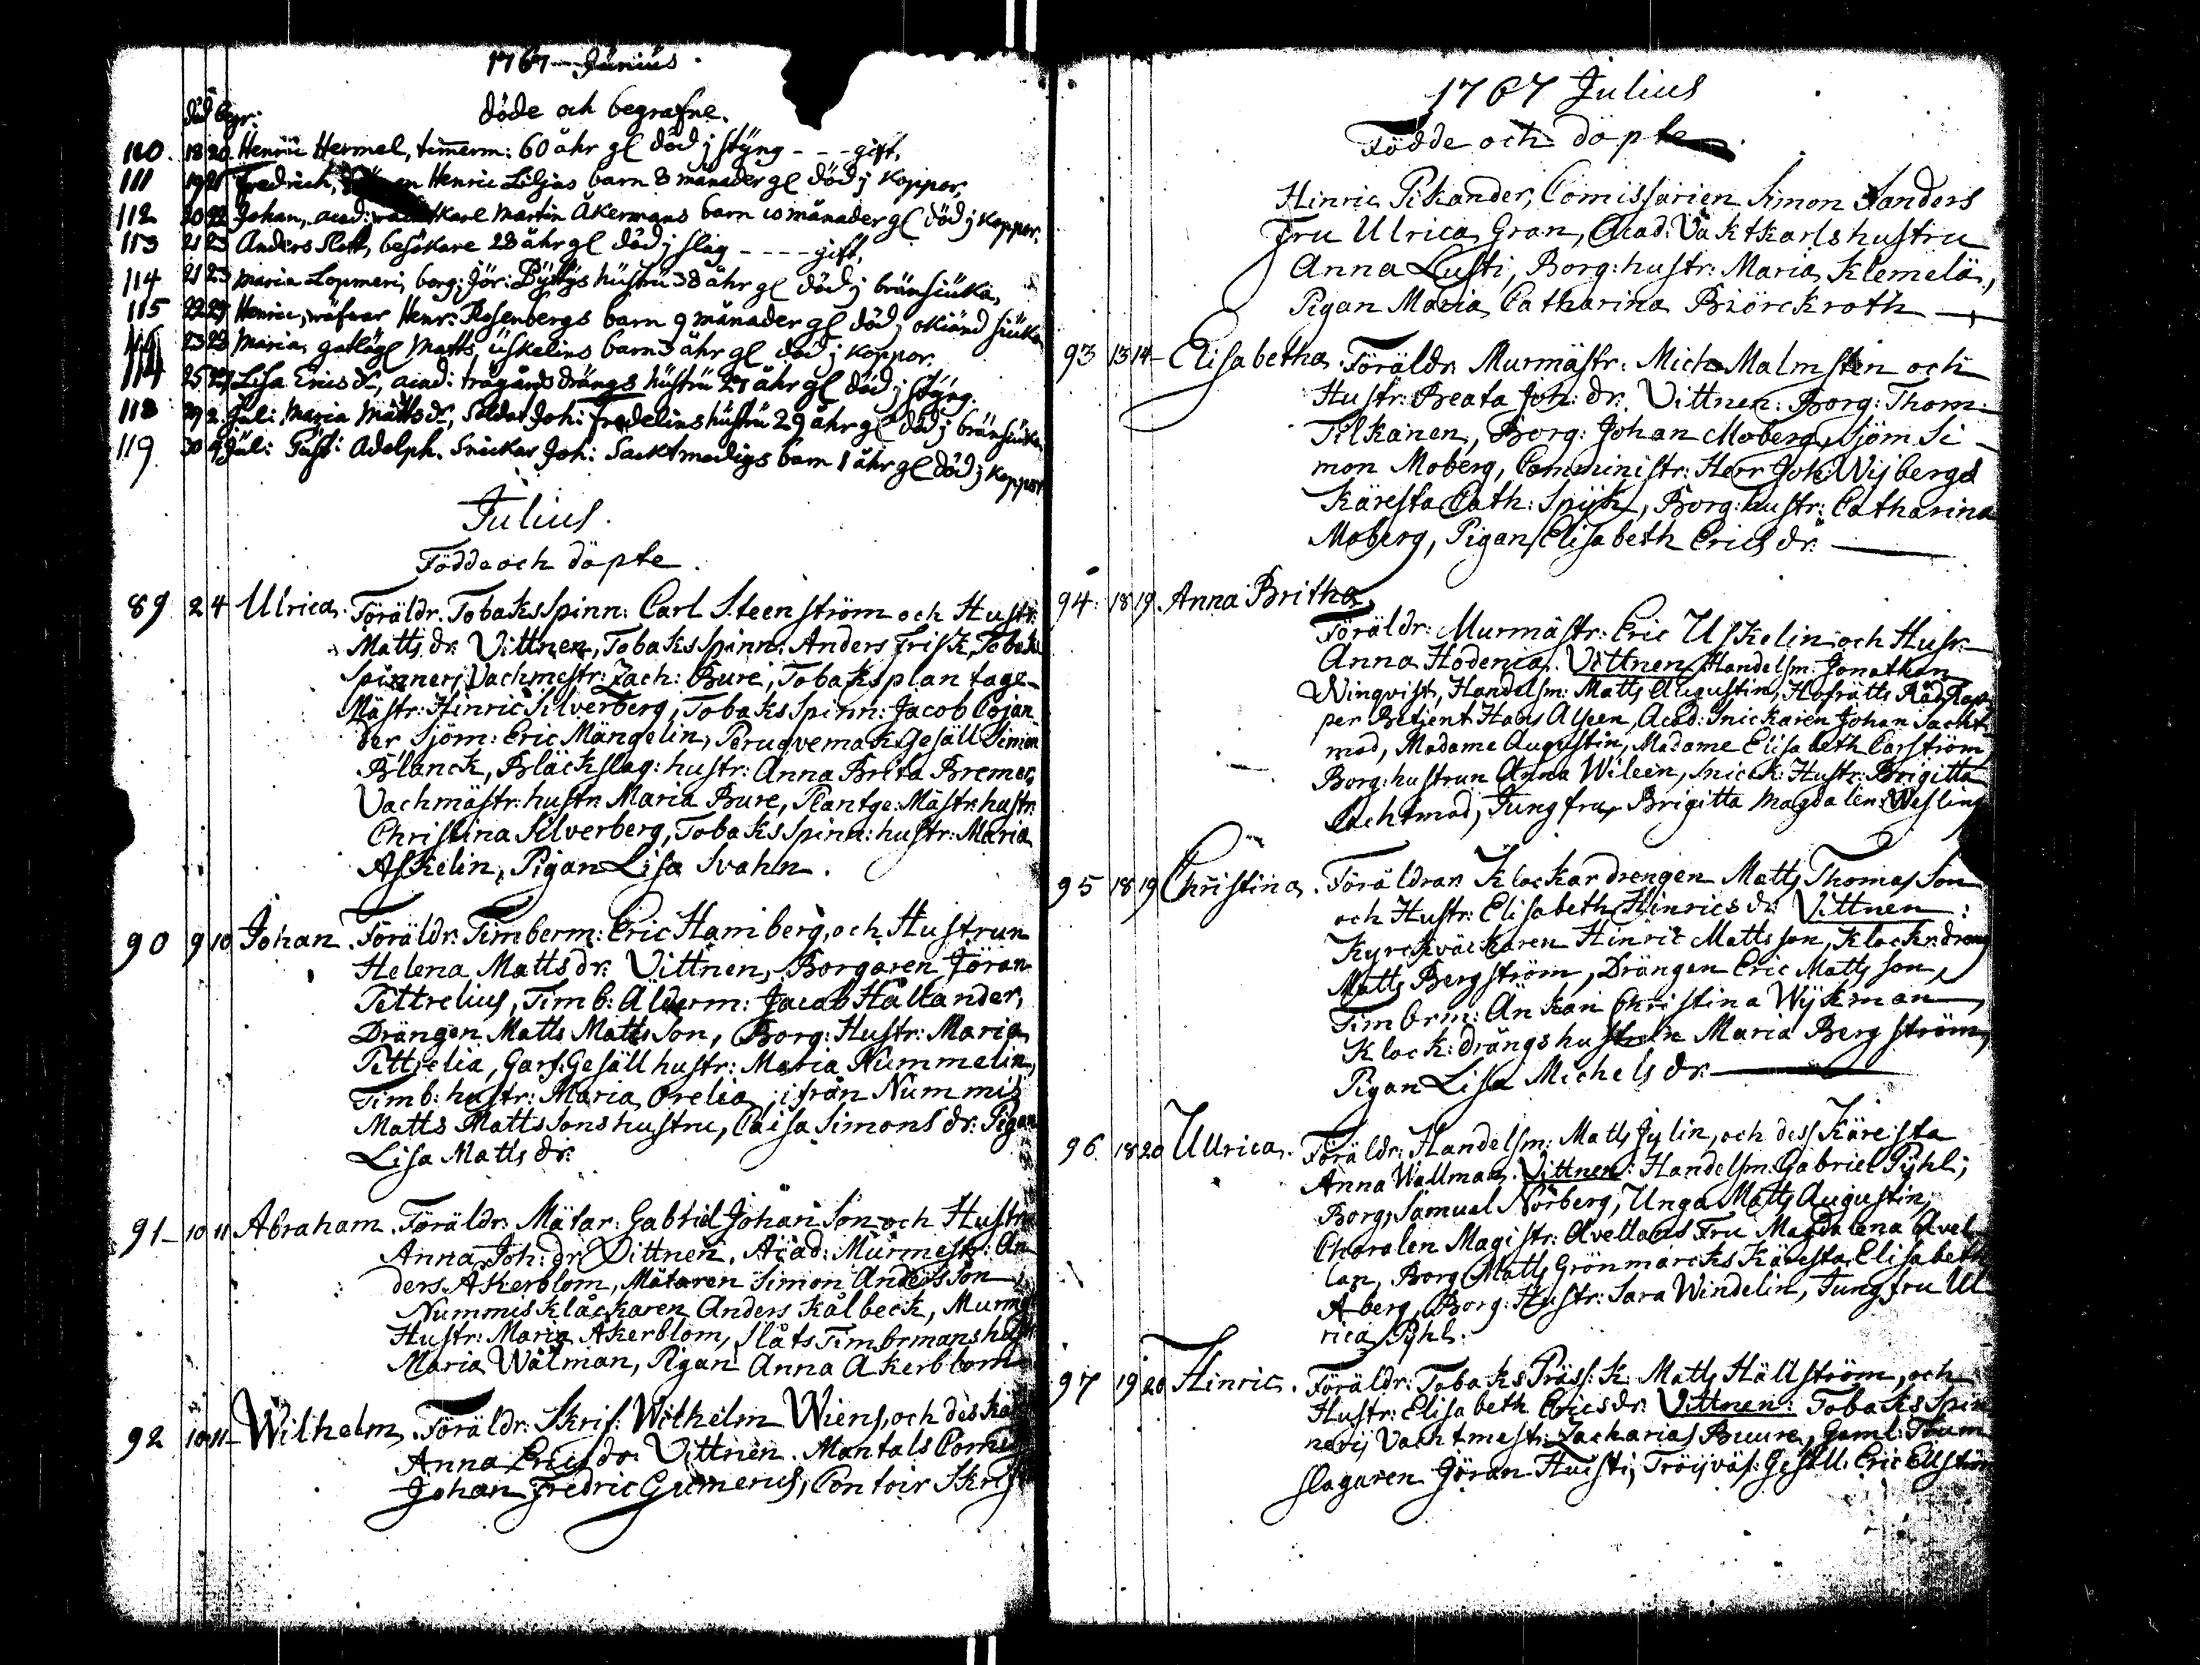 1767 Junius.
död begr: döde och begrafne.
110. 18 20 Henric Hermel, timerm: 60 åhr gl död j styng - - - gift,
111 19 21 Fredrich, Henric Liljas barn 8 månader gl död j koppor,
112 20 22 Johan, acad: Martin Åkermans barn 10 månader gl död j koppor.
113 21 23 Anders Slott, besökare 28 åhr gl död j slag - - - - gift,
114 21 23 Maria Lopmeri, borg: Jör: hustru 38 åhr gl död j bränsiuka,
115 Henric, Henr: Rosenbergs barn 9 månader gl död j okiänd siuka
116 23 Maria, Matts Uskelins barn 3 åhr gl död j koppor.
25 27 Lisa Ericsdr, acad: trägårdsdrängs hustru 27 åhr gl död j styng.
118 29 2. Jul: Maria Mattsdr, Soldat Joh: Fredelins hustru 29 åhr gl död j bränsiuka
119 30 Jul: Gust: Adolph. Snickar Joh: Sacktmodigs barn 1 åhr gl död j koppor
Julius.
Födde och döpte.
89 2 4 Ulrica. Föräldr. Tobaks Spinn: Carl Steenström och Hustr:
Matts dr. Vittnen, Tobaks Spinn: Anders Frisk, Tobaks
Spinnerj Vachmestr: Zach: Bure, Tobaksplantage-
Mästr: Hinric Silverberg, Tobaks Spinn: Jacob Cojan
der Sjöm: Eric Mängelin, Peruqvemak Gesäll Simon
Blanck, Bläckslag: hustr: Anna Brita Bremer,
Vachmästr: hustr: Maria Bure, Plantge: Mästr: hustr:
Christina Silverberg, Tobaks Spinn: hustr: Maria
Askelin, Pigan Lisa Svahn.
90 9 10 Johan. Föräldr: Timberm: Eric Hamberg, och Hustrun
Helena Matts dr: Vittnen, Borgaren Jöran
Pettrelius, Timb: Ålderm: Jacob Hållander,
Drängen Matts Matts Son, Borg: Hustr: Maria
Pettrelia, Garf: Gesäll hustr: Maria Nummelin,
Timb: hustr: Maria Orelia, ifrån Nummis
Matts Matts Sons hustru, Caisa Simons dr: Pigan
Lisa Matts dr:
91 10 11 Abraham. Föräldr: Mätar: Gabriel Johan Son och Hustru
Anna Joh: dr: Vittnen. Acad: Murmestr: An
ders Åkerblom, Mätaren Simon Anders Son,
Nummis klåckaren Anders Kålbeck, Murmg:
Hustr: Maria Åkerblom, Slåts Timbrmans hust
Maria Wålman, Pigan Anna Åkerblom
92 10 11 Wilhelm. Föräldr: Skrif: Wilhelm Wiens, och des kä
Anna Erics dr: Vittnen. Mantals Comis
Johan Fredric Gumerus, Contoir Skrif
1767 Julius
Födde och döpte.
Hinric Pikander, Comissarien Simon Sanders
Fru Ulrica Gran, Acad: Vaktkarls hustru
Anna Lusti, Borg: hustr: Maria Klemelä,
Pigan Maria Catharina Biörckroth
93 13 14 Elisabetha. Föräldr: Murmästr: Mich: Malmsten och
Hustr: Beata Joh: dr. Vittnen: Borg: Thom:
Pilkanen, Borg: Johan Moberg, Sjöm Si-
mon Moberg, Comministr: Herr Joh: Wijbergs
Käresta Cath: Spijk, Borg: hustr: Catharina
Moberg, Pigan Elisabeth Erics dr.
94 18 19 Anna Britha.
Föräldr: Murmästr: Eric Uskelin och Hustr:
Anna Hodenia. Vittnen Handelsm: Jonathan
Winqvist, Handelsm: Matts Augustin, Hofrätts Råd
per Betjent Hans Alfeen, Acad: Snickaren Johan Sacht
mod, Madame Augustin, Madame Elisabeth Carström
Borg: hustrun Anna Wileen, Snick: Hustr: Brigitta
Sachtmod, Jungfru Brigitta Magdalen: Wesling
95 18 19 Christina. Föräldrar Klockardrengen Matts Thomas Son
och Hustr: Elisabeth Hinrics dr: Vittnen:
Kyrckväckaren Hinric Matts son, Klock: dreng
Matts Bergström, Drängen Eric Matts son,
Timbrm: Änkan Christina Wijkman,
Klock: drängs hustrun Maria Bergström,
Pigan Lisa Michels dr:
96 18 20 Ullrica. Föräldr: Handelsm: Matts Jylin, och dess Käresta
Anna Wallman. Vittnen: Handelsm: Gabriel Pyhl;
Borg: Samuel Norberg, Unga Matts Augustin,
Choralen Magistr: Avellans Fru Magdalena Avel-
lan, Borg: Matts Grönmarcks Käresta Elisabeth
Åberg, Borg: Hustr: Sara Windelin, Jungfru Ul
rica Pyhl.
97 19 20 Hinric. Föräldr: Tobaks Präss: K: Matts Hällström, och
Hustr: Elisabeth Erics dr: Vittnen: Tobaks Spin
nerij Vachtmestr: Zacharias Buure, Gaml: Trum
slagaren Jöran Huisti, Tröijväf: Gesäll: Eric Ellström